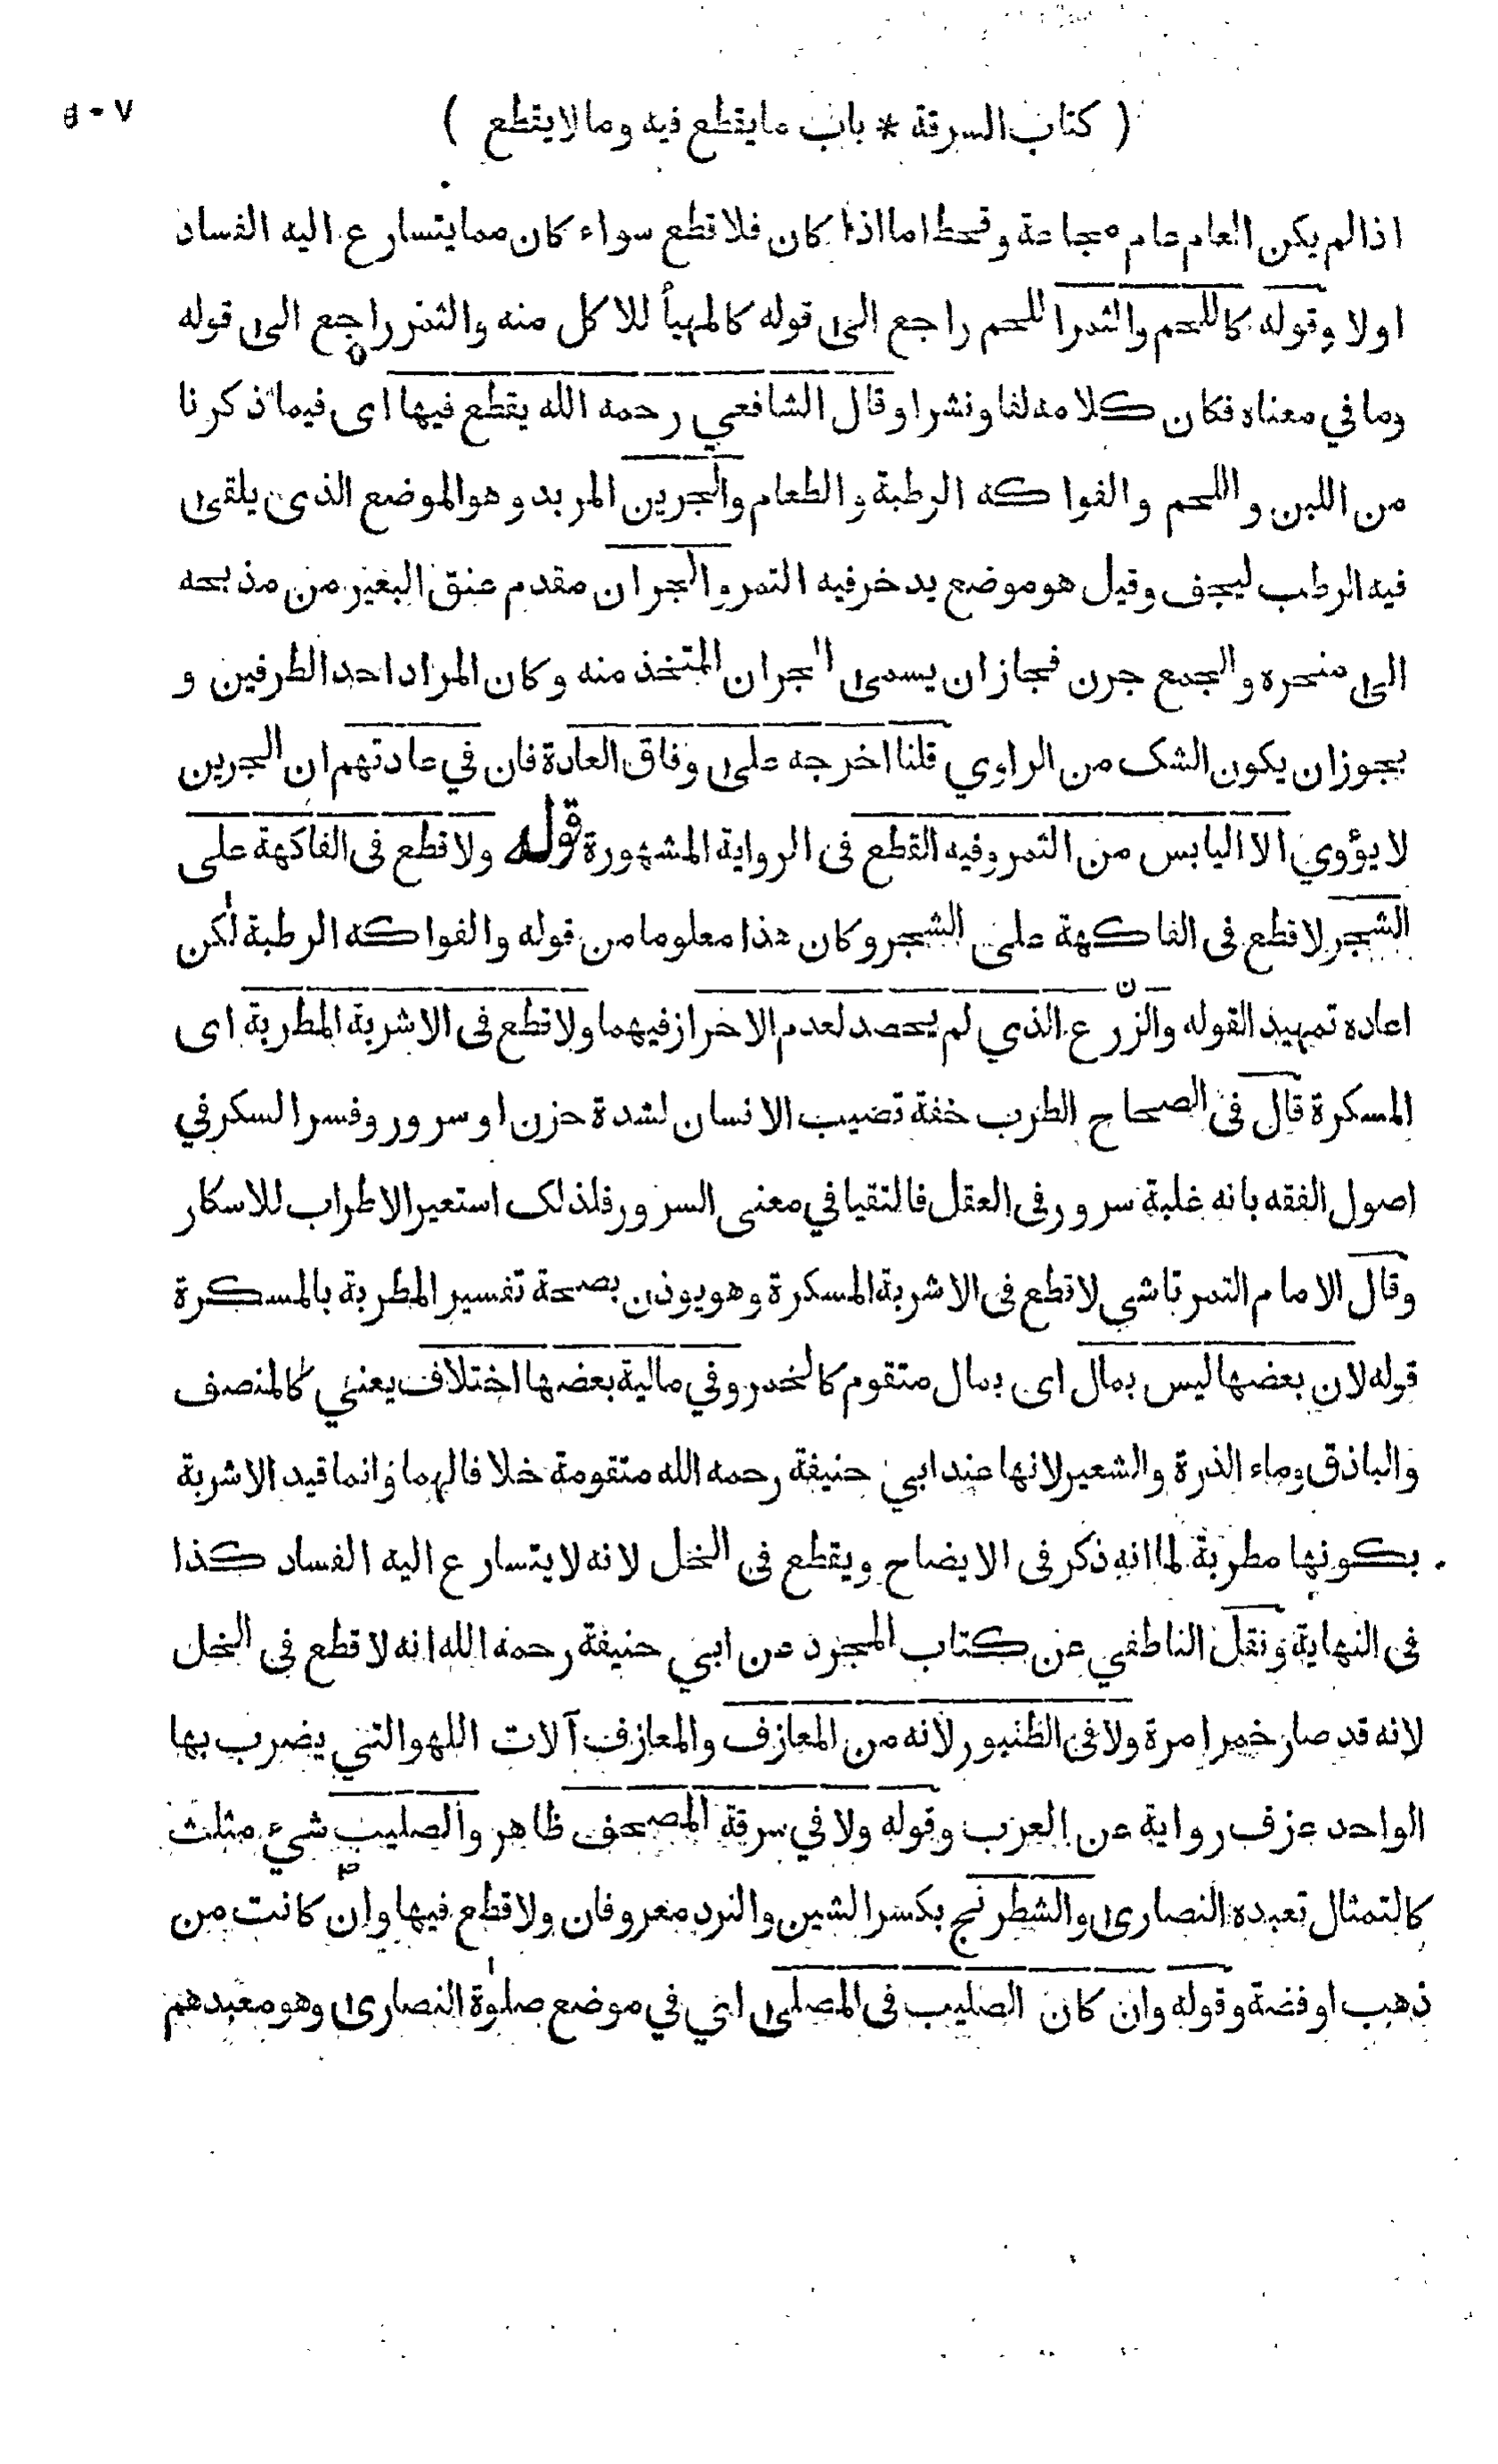 ( كتاب السرقة * باب ما يقطع فيه وما لا يقطع ) ٥٠٧
اذا لم يكن العام عام مجاعة وقحط اما اذا كان فلا قطع سواء كان مما يتسارع اليه الفساد
اولا وقوله كاللحم والثمر اللحم راجع الى قوله كالمهيأ للاكل منه والثمر راجع الى قوله
وما في معناه فكان كلامه لفا ونشرا وقال الشافعي رحمه الله يقطع فيها اى فيما ذكرنا
من اللبن واللحم والفواكه الرطبة والطعام والجرين المربد وهو الموضع الذى يلقى
فيه الرطب ليجف وقيل هو موضع يدخر فيه التمر والجران مقدم عنق البعير من مذبحه
الى منحره والجمع جرن فجاز ان يسمى الجران المتخذ منه وكان المراد احد الطرفين و
يجوز ان يكون الشك من الراوي قلنا اخرجه على وفاق العادة فان في عادتهم ان الجرين
لا يؤوي الا اليابس من الثمر وفيه القطع فى الرواية المشهورة قوله ولا قطع فى الفاكهة على
الشجر لا قطع فى الفاكهة على الشجر وكان هذا معلوما من قوله والفواكه الرطبة لكن
اعاده تمهيدا لقوله والزرع الذي لم يحصد لعدم الاحراز فيهما ولا قطع فى الاشربة المطربة اى
المسكرة قال فى الصحاح الطرب خفة تصيب الانسان لشدة حزن او سرور وفسر السكر في
اصول الفقه بانه غلبة سرور فى العقل فالتقيا في معنى السرور فلذلك استعير الاطراب للاسكار
وقال الامام التمرتاشي لا قطع فى الاشربة المسكرة وهو يوذن بصحة تفسير المطربة بالمسكرة
قوله لان بعضها ليس بمال اى بمال متقوم كالخمر وفي مالية بعضها اختلاف يعني كالمنصف
والباذق وماء الذرة والشعير لانها عند ابي حنيفة رحمه الله متقومة خلافا لهما وانما قيد الاشربة
بكونها مطربة لما انه ذكر فى الايضاح ويقطع فى الخل لانه لا يتسارع اليه الفساد كذا
فى النهاية ونقل الناطفي عن كتاب المجرد عن ابي حنيفة رحمه الله انه لا قطع فى الخل
لانه قد صار خمرا مرة ولا فى الطنبور لانه من المعازف والمعازف آلات اللهو التي يضرب بها
الواحد عزف رواية عن العرب وقوله ولا في سرقة المصحف ظاهر والصليب شيء مثلث
كالتمثال تعبده النصارى والشطرنج بكسر الشين والنرد معروفان ولا قطع فيها وان كانت من
ذهب او فضة وقوله وان كان الصليب فى المصلى اي في موضع صلوة النصارى وهو معبدهم